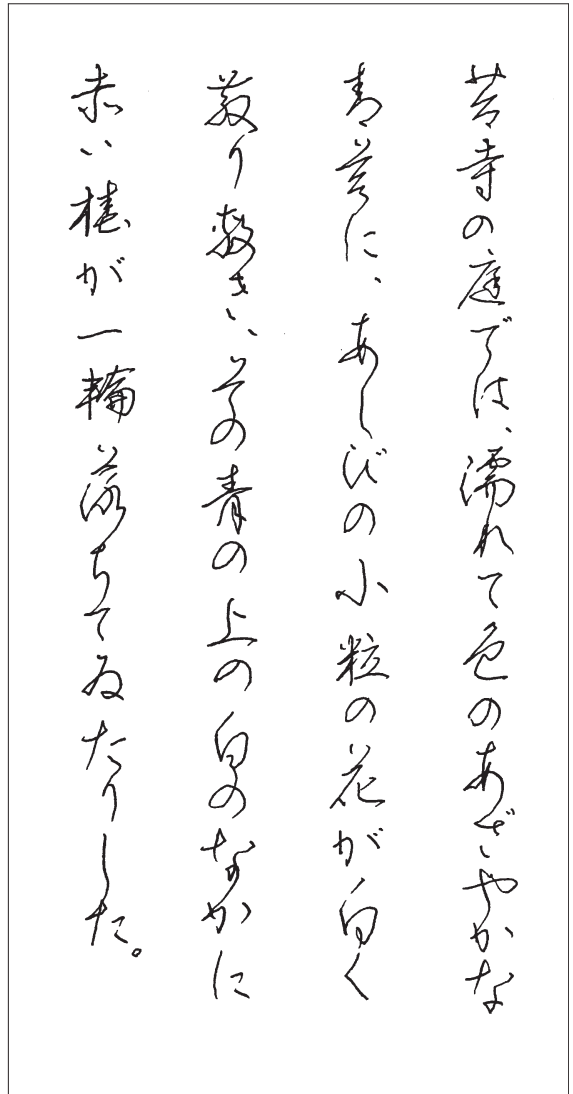 苔寺の庭では、濡れて色のあざやかな
青苔に、あしびの小粒の花が白く
散り敷き、その青の上の白のなかに
赤い椿が一輪落ちてゐたりした。